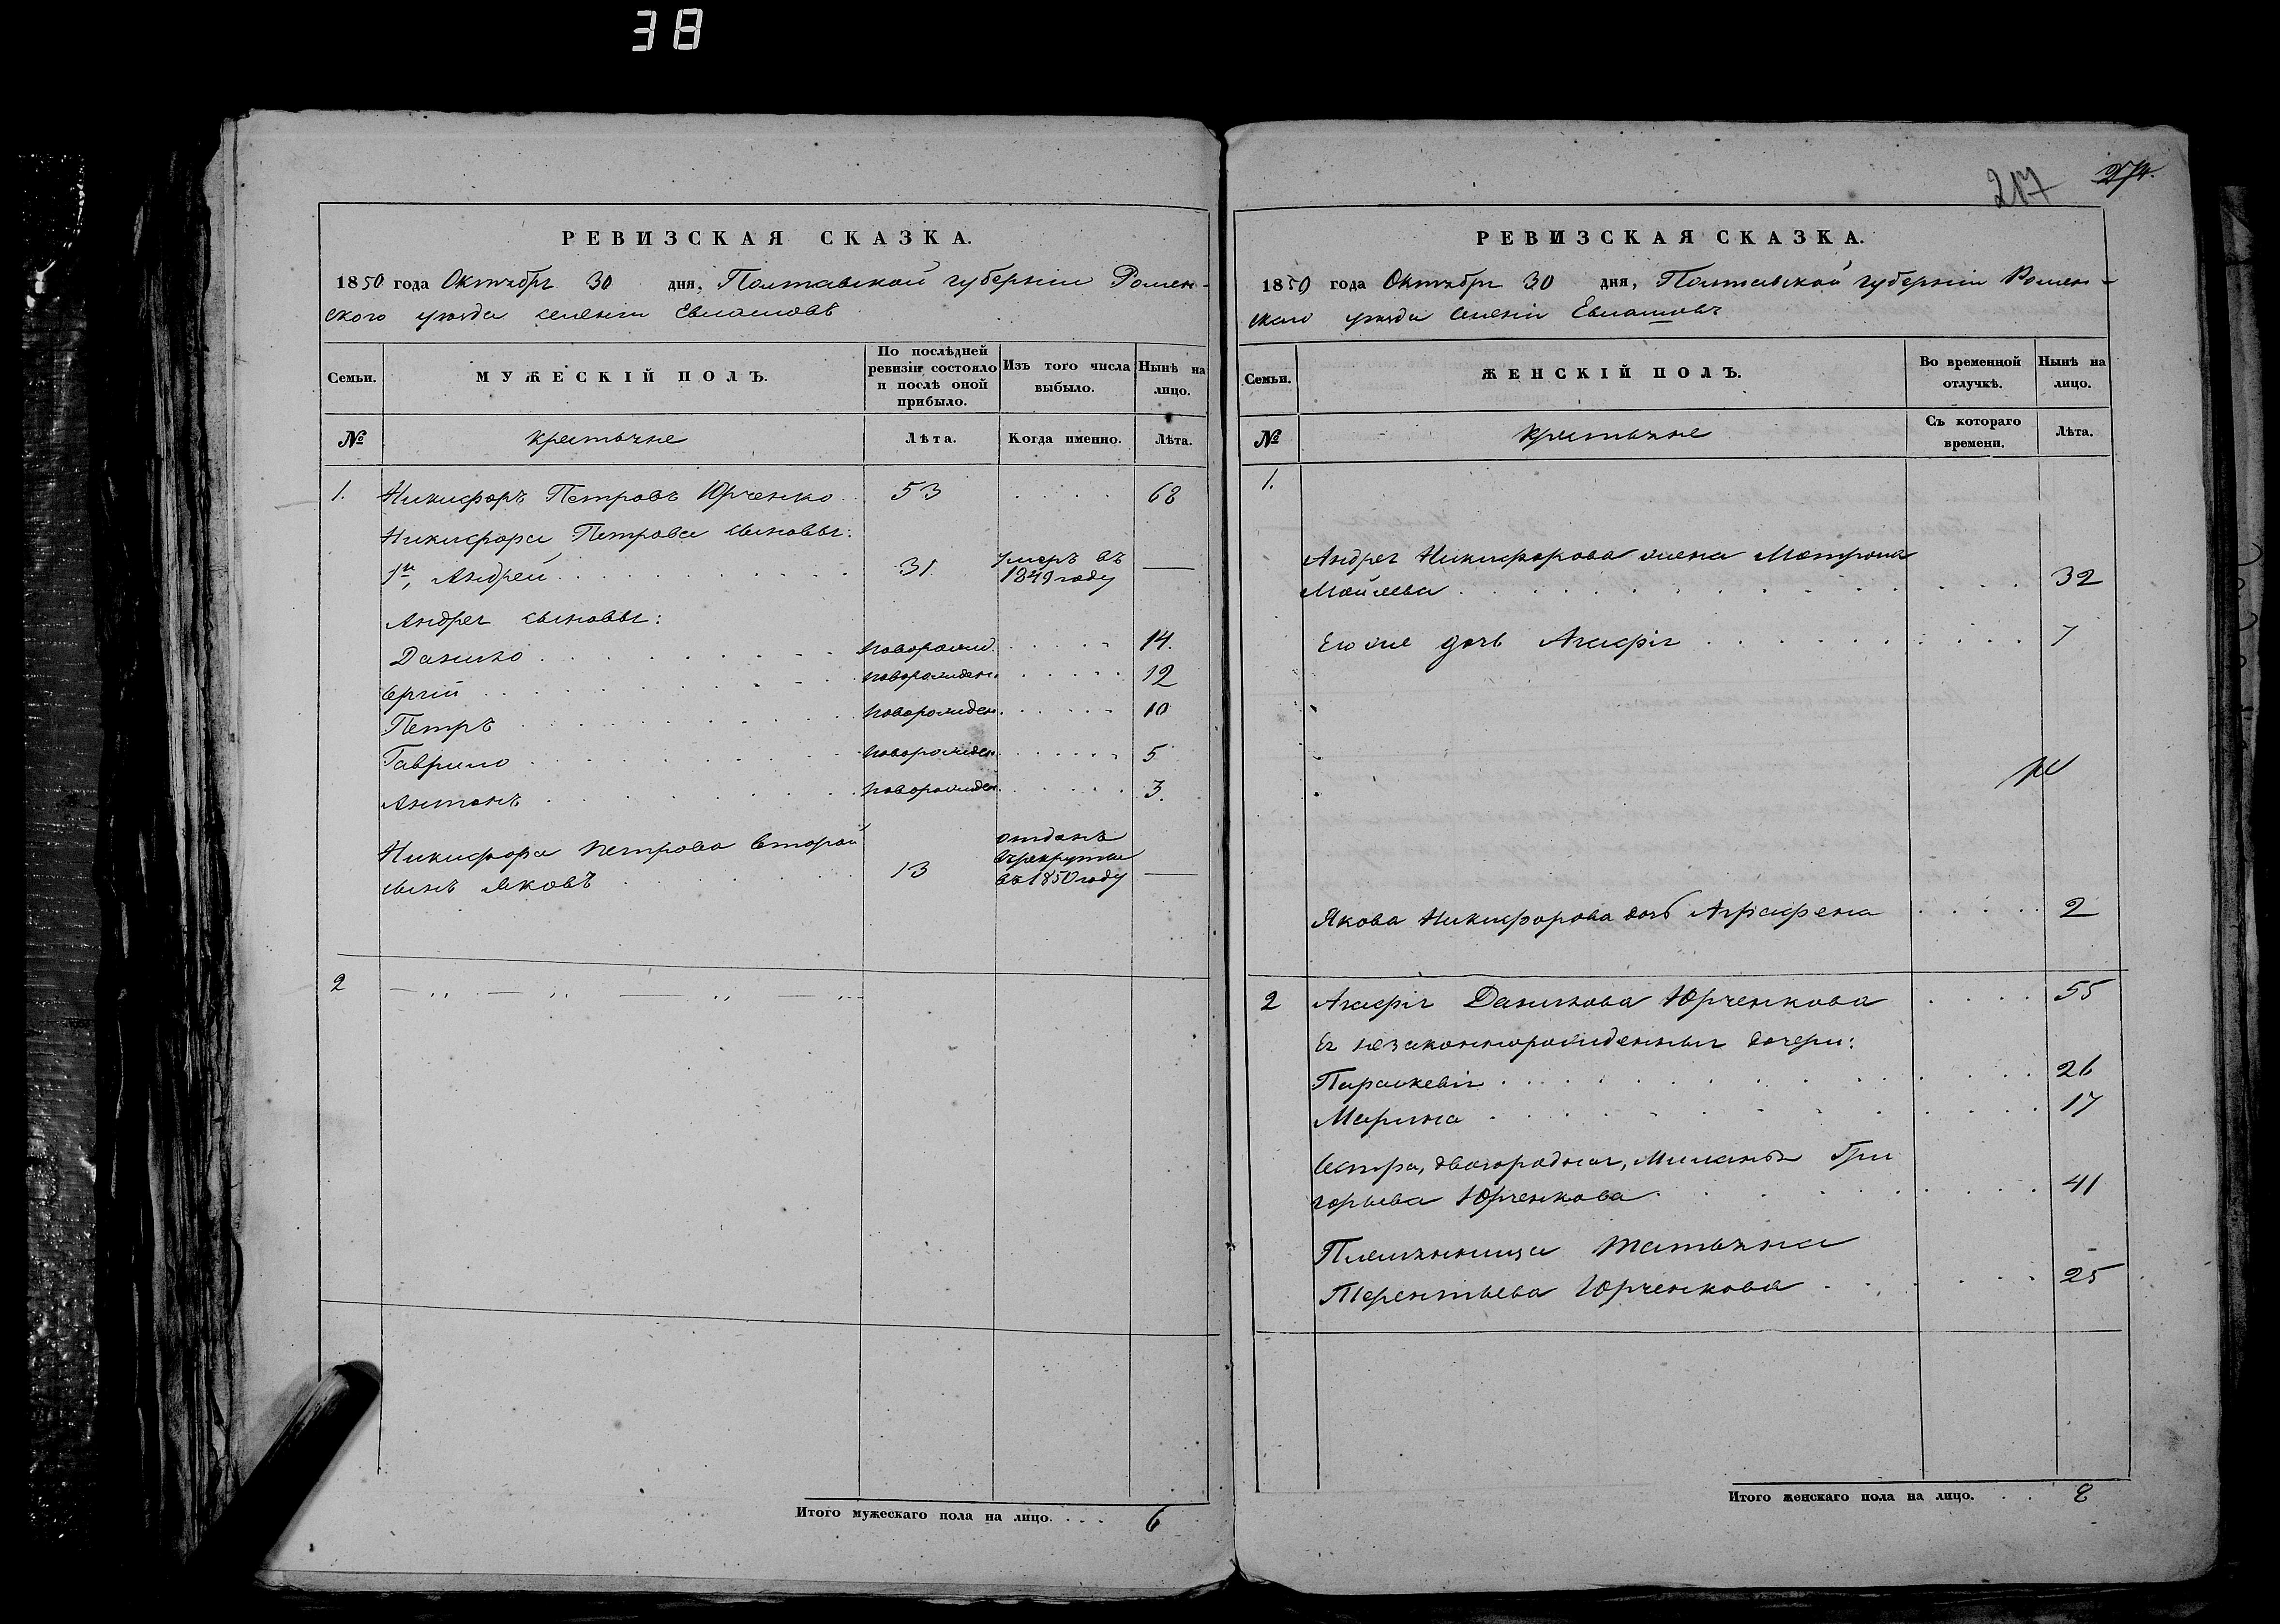 38
РЕВИЗСКАЯ СКАЗКА.
1850 года Октября 30 дня, Полтавской губерніи Ромен-
ского уѣзда селенія Евлашовъ
Семьи.
МУЖЕСКІЙ ПОЛЪ.
По послѣдней ревизіи состояло и послѣ оной прибыло.
Изъ того числа выбыло.
Нынѣ на лицо.
№
Крестьяне
Лѣта.
Когда именно.
Лѣта.
1. Никифоръ Петровъ Юрченко . . 53 . . . . 68
Никифора Петрова сыновья:
1й, Андрей . . . 31. умеръ въ 1849 году —
Андрея сыновья:
Данило . . . новорожд. . . . 14.
Сргій . . . новорожден. . . . 12
Петръ . . . новорожден. . . . 10
Гаврило . . . новорожден. . . . 5
Антонъ . . . новорожден. . . . 3.
Никифора Петрова второй
сынъ Яковъ . . . 13 отданъ въ рекруты въ 1850 году —
2
Итого мужескаго пола на лицо. . . . 6
217 274.
РЕВИЗСКАЯ СКАЗКА.
1850 года Октября 30 дня, Полтавской губерніи Ромен-
скаго уѣзда селенія Евлашовъ
Семьи.
ЖЕНСКІЙ ПОЛЪ.
Во временной отлучкѣ.
Нынѣ на лицо.
№
Крестьяне
Съ котораго времени.
Лѣта.
1.
Андрея Никифорова жена Матрона
Мойсѣева . . . 32
Его же дочь Агафія . . . 7
Якова Никифорова дочь Аграфена . . . 2
2 Агафія Данилова Юрченкова . . . 55
Ея незаконнорожденныя дочери:
Параскевія . . . 26
Марина . . . 17
Сестра, двоюродная, Миланья Гри
горьева Юрченкова . . . 41
Племянница Татьяна
Терентьева Юрченкова . . . 25
Итого женскаго пола на лицо. . . 8